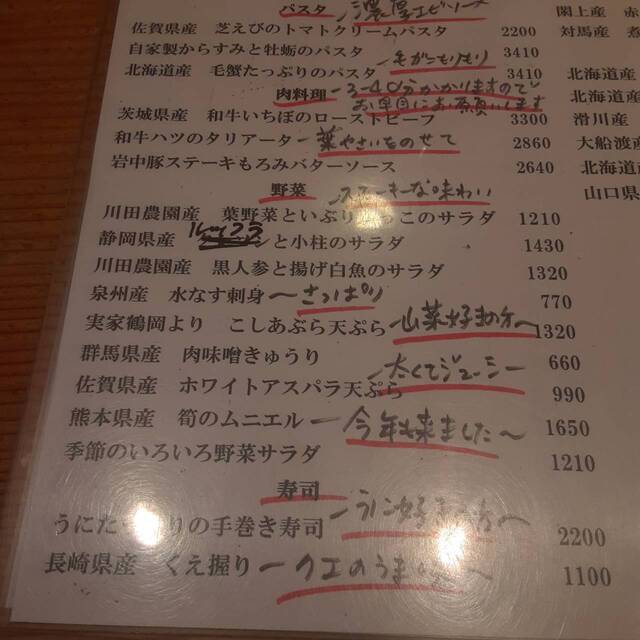 パスタ 濃厚エビソース
佐賀県産 芝えびのトマトクリームパスタ 2200
自家製からすみと牡蛎のパスタ 3410
北海道産 毛蟹たっぷりのパスタ 毛ガニもりもり 3410
肉料理 3~40分かかりますので
お早目にお願いします
茨城県産 和牛いちぼのローストビーフ 3300
和牛ハツのタリアータ 葉やさいをのせて 2860
岩中豚ステーキもろみバターソース 2640
野菜 スモーキーな味わい
川田農園産 葉野菜といぶりがっこのサラダ 1210
静岡県産 と小柱のサラダ 1430
川田農園産 黒人参と揚げ白魚のサラダ 1320
泉州産 水なす刺身 〜さっぱり 770
実家鶴岡より こしあぶら天ぷら 山菜好きの方へ 1320
群馬県産 肉味噌きゅうり 660
佐賀県産 ホワイトアスパラ天ぷら 太くてジューシー 990
熊本県産 筍のムニエル 今年も来ました〜 1650
季節のいろいろ野菜サラダ 1210
寿司
うにた りの手巻き寿司 うに好きの方へ 2200
長崎県産 くえ握り クエのうま 1100
閖上産 赤
対馬産 煮
北海道産
北海道産
滑川産
大船渡産
北海道
山口県